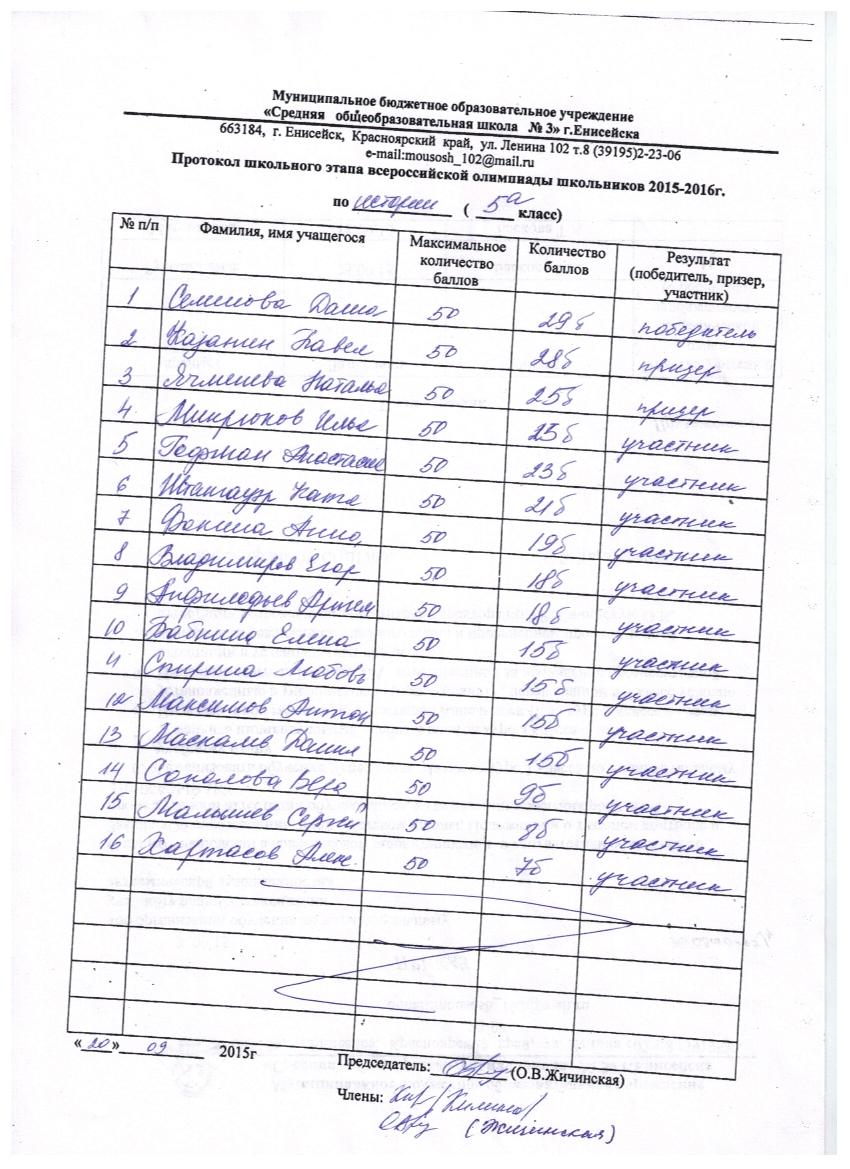 Муниципальное бюджетное образовательное учреждение
«Средняя общеобразовательная школа № 3» г.Енисейска
663184, г. Енисейск, Красноярский край, ул. Ленина 102 т.8 (39195)2-23-06
e-mail:mousosh_102@mail.ru
Протокол школьного этапа всероссийской олимпиады школьников 2015-2016г.
по истории ( 5а класс)
№ п/п Фамилия, имя учащегося Максимальное количество баллов Количество баллов Результат (победитель, призер, участник)
1 Семенова Даша 50 29б победитель
2 Казанин Павел 50 28б призер
3 Ячменева Наталья 50 25б призер
4. Микрюков Илья 50 23б участник
5 Гофман Анастасия 50 23б участник
6 Штангауэр Катя 50 21б участник
7 Фонина Анна 50 19б участник
8 Владимиров Егор 50 18б участник
9 Артем 50 18б участник
10 Бабкина Елена 50 15б участник
11 Спирина Любовь 50 15б участник
12 Максимов Антон 50 15б участник
13 Маскаль Данил 50 15б участник
14 Соколова Вера 50 9б участник
15 Малышев Сергей 50 8б участник
16 Хартасов Алек. 50 7б участник
«20» 09 2015г
Председатель: (О.В.Жичинская)
Члены:
(Жичинская)